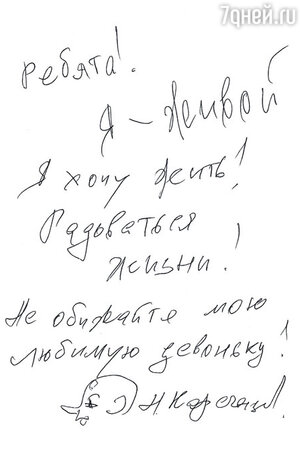 7дней.ru
ребята!
Я – живой
Я хочу жить!
Радоваться
жизни!
Не обижайте мою
любимую девоньку!
Н. Караченцов.